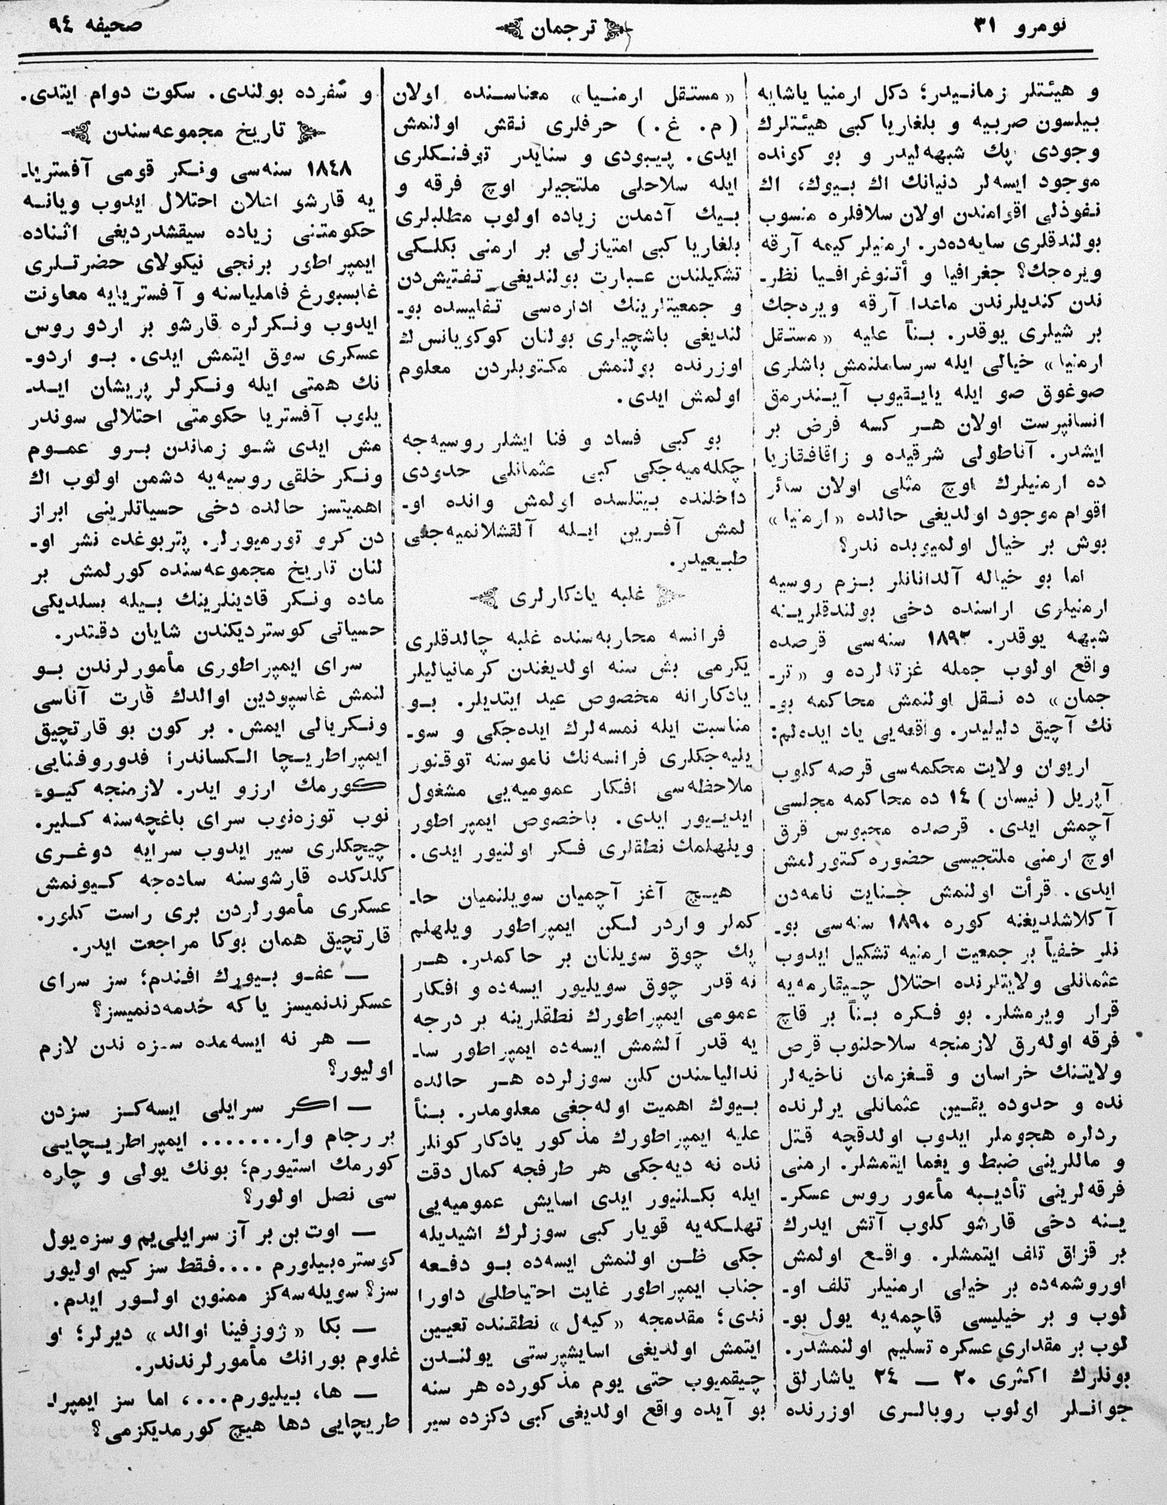 نومرو ٣١
ترجمان
صحیفه ٩٤
و هیئتلر زمانیدر؛ دکل ارمنیا یاشایه
بیلسون صربیه و بلغاریا کبی هیئتلرك
وجودی پك شبهه‌لیدر و بو کونده
موجود ایسه‌لر دنیانك اك بیوك، اك
نفوذلی اقوامندن اولان سلافلره منسوب
بولندقلری سایه‌ده‌در. ارمنیلر کیمه آرقه
ویره‌جك؟ جغرافیا و أتنوغرافیا نظر-
ندن کندیلرندن ماعدا آرقه ویردجك
بر شیلری یوقدر. بناً علیه «مستقل
ارمنیا» خیالی ایله سرساملنمش باشلری
صوغوق صو ایله یایقیوب آیندرمق
انسانپرست اولان هر کسه فرض بر
ایشدر. آناطولی شرقیده و زاقافقازیا
ده ارمنیلرك اوچ مثلی اولان سائر
اقوام موجود اولدیغی حالده «ارمنیا»
بوش بر خیال اولمیوبده ندر؟
اما بو خیاله آلدانانلر بزم روسیه
ارمنیلری اراسنده دخی بولندقلرینه
شبهه یوقدر. ١٨٩٢ سنه‌سی قرصده
واقع اولوب جمله غزتالرده و «تر-
جمان» ده نقل اولنمش محاکمه بو-
نك آچیق دلیلیدر. واقعه‌یی یاد ایده‌لم:
اریوان ولایت محکمه‌سی قرصه کلوب
آپریل (نیسان) ١٤ ده محاکمه مجلسی
آچمش ایدی. قرصده محبوس قرق
اوچ ارمنی ملتجیسی حضوره کتورلمش
ایدی. قرأت اولنمش جنایت نامه‌دن
آکلاشلدیغنه کوره ١٨٩٠ سنه‌سی بو-
نلر خفیاً بر جمعیت ارمنیه تشکیل ایدوب
عثمانلی ولایتلرنده احتلال چیقارمه‌یه
قرار ویرمشلر. بو فکره بناً بر قاچ
فرقه اوله‌رق لازمنجه سلاحلنوب قرص
ولایتنك خراسان و قغزمان ناخیه‌لر
نده و حدوده یقین عثمانلی یرلرنده
ردلره هجوملر ایدوب اولدقچه قتل
و ماللرینی ضبط و یغما ایتمشلر. ارمنی
فرقه‌لرینی تأدیبه مأمور روس عسکر-
ینه دخی قارشو کلوب آتش ایدرك
بر قزاق تلف ایتمشلر. واقع اولمش
اوروشمه‌ده بر خیلی ارمنیلر تلف او-
لوب و بر خیلیسی قاچمه‌یه یول بو-
لوب بر مقداری عسکره تسلیم اولنمشدر.
بونلرك اکثری ٢٠ — ٢٤ یاشارلق
جوانلر اولوب روبالری اوزرنده
«مستقل ارمنیا» معناسنده اولان
(م. غ.) حرفلری نقش اولنمش
ایدی. پیبودی و سنایدر توفنکلری
ایله سلاحلی ملتجیلر اوچ فرقه و
بیك آدمدن زیاده اولوب مطلبلری
بلغاریا کبی امتیازلی بر ارمنی بکلکی
تشکیلندن عبارت بولندیغی تفتیش‌دن
و جمعیتلرینك اداره‌سی تفلیسده بو-
لندیغی باشچیلری بولنان کوکویانس‌ك
اوزرنده بولنمش مکتوبلردن معلوم
اولمش ایدی.
بو کبی فساد و فنا ایشلر روسیه‌جه
چکله‌میه‌جکی کبی عثمانلی حدودی
داخلنده بیتلسده اولمش وانده او-
لمش آفرین ایله آلقشلانمیه‌جغی
طبیعیدر.
غلبه یادکارلری
فرانسه محاربه‌سنده غلبه چالدقلری
یکرمی بش سنه اولدیغندن کرمانیالیلر
یادکارانه مخصوص عید ایتدیلر. بو
مناسبت ایله نمسه‌لرك ایده‌جکی و سو-
یلیه‌جکلری فرانسه‌نك ناموسنه توقنور
ملاحظه‌سی افکار عمومیه‌یی مشغول
ایدیور ایدی. باخصوص ایمپراطور
ویلهلمك نطقلاری فکر اولنیور ایدی.
هیچ آغز آچمیان سویلنمیان حا-
کملر واردر لکن ایمپراطور ویلهلم
پك چوق سویلنان بر حاکمدر. هر
نه قدر چوق سویلیور ایسه‌ده و افکار
عمومی ایمپراطورك نطقلرینه بر درجه
یه قدر آلشمش ایسه‌ده ایمپراطور سا-
ندالیاسندن کلن سوزلرده هر حالده
بیوك اهمیت اوله‌جغی معلومدر. بناً
علیه ایمپراطورك مذکور یادکار کونلر
نده نه دیه‌جکی هر طرفجه کمال دقت
ایله بکلنیور ایدی اسایش عمومیه‌یی
تهلکه‌یه قویار کبی سوزلرك اشیدیله
جکی ظن اولنمش ایسه‌ده بو دفعه
جناب ایمپراطور غایت احتیاطلی داورا
ندی؛ مقدمجه «کیه‌ل» نطقنده تعیین
ایتمش اولدیغی اسایشپرستی یولندن
چیقمیوب حتی یوم مذکورده هر سنه
بو آیده واقع اولدیغی کبی دکزده سیر
و سفرده بولندی. سکوت دوام ایتدی.
تاریخ مجموعه‌سندن
١٨٤٨ سنه‌سی ونکر قومی آفستریا-
یه قارشو اعلان احتلال ایدوب ویانه
حکومتنی زیاده سیقشدردیغی اثناده
ایمپراطور برنجی نیکولای حضرتلری
غابسبورغ فاملیاسنه و آفستریایه معاونت
ایدوب ونکرلره قارشو بر اردو روس
عسکری سوق ایتمش ایدی. بو اردو-
نك همتی ایله ونکرلر پریشان اید-
یلوب آفستریا حکومتی احتلالی سوندر
مش ایدی شو زماندن برو عموم
ونکر خلقی روسیه‌یه دشمن اولوب اك
اهمیتسز حالده دخی حسیاتلرینی ابراز
دن کرو تورمیورلر. پتربوغده نشر او-
لنان تاریخ مجموعه‌سنده کورلمش بر
ماده ونکر قادینلرینك بیله بسلدیکی
حسیاتی کوستردیکندن شایان دقتدر.
سرای ایمپراطوری مأمورلرندن بو
لنمش غاسپودین اوالدك قارت آناسی
ونکریالی ایمش. بر کون بو قارتچیق
ایمپراطریچا الکساندرا فدوروفنایی
کورمك ارزو ایدر. لازمنجه کیو-
نوب توزه‌نوب سرای باغچه‌سنه کلیر.
چیچکلری سیر ایدوب سرایه دوغری
کلدکده قارشوسنه ساده‌جه کیونمش
عسکری مأمورلردن بری راست کلور.
قارتچیق همان بوکا مراجعت ایدر.
— عفو بیورك افندم؛ سز سرای
عسکرندنمیسز یاکه خدمه‌دنمیسز؟
— هر نه ایسه‌مده سزه ندن لازم
اولیور؟
— اکر سرایلی ایسه‌کز سزدن
بر رجام وار....... ایمپراطریچایی
کورمك استیورم؛ بونك یولی و چاره
سی نصل اولور؟
— اوت بن بر آز سرایلی‌یم و سزه یول
کوستره‌بیلورم ....فقط سز کیم اولیور
سز؟ سویله‌سه‌کز ممنون اولور ایدم.
— بکا «ژوزفینا اوالد» دیرلر؛ او
غلوم بورانك مأمورلرندندر.
— ها، بیلیورم....، اما سز ایمپرا-
طریچایی دها هیچ کورمدیکزمی؟